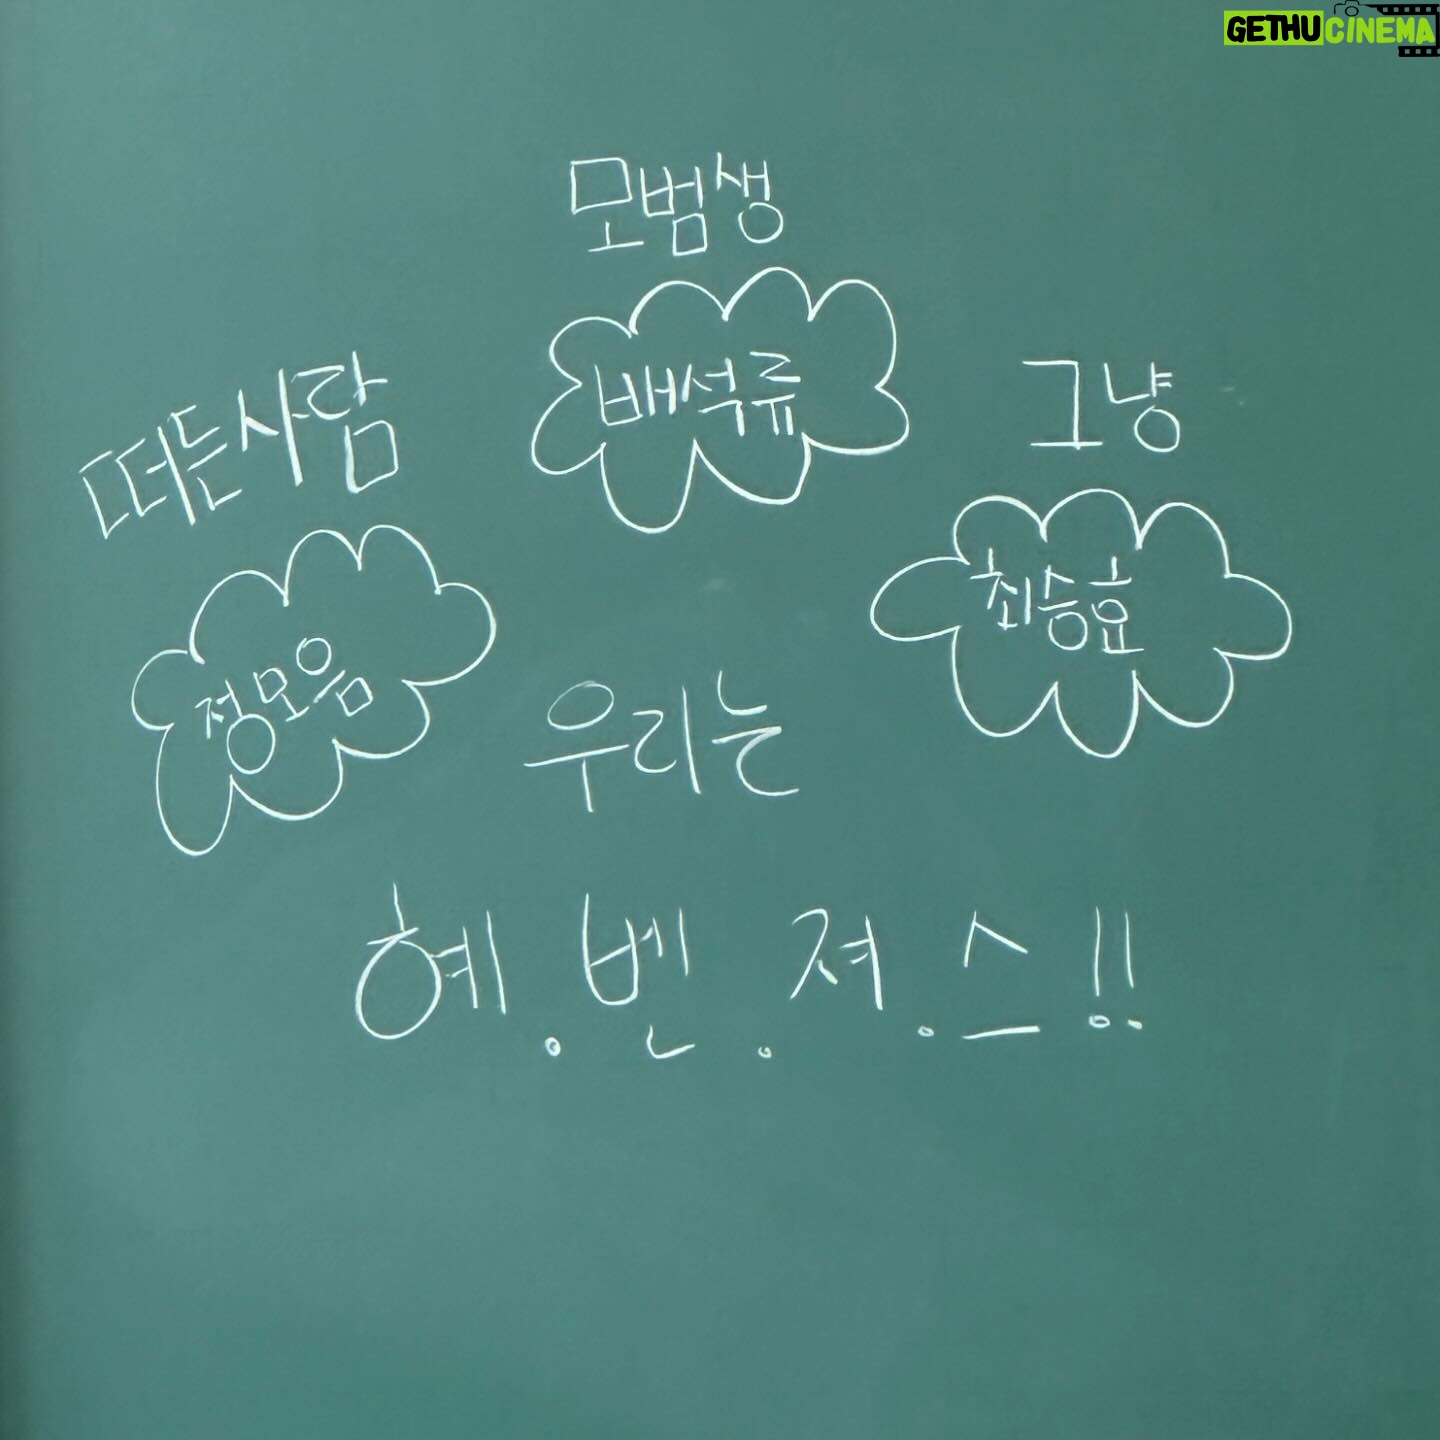 GETHUCINEMA
모범생
배석류
떠는사람
정모음
그냥
최승효
우리는
혜.벤.져.스!!